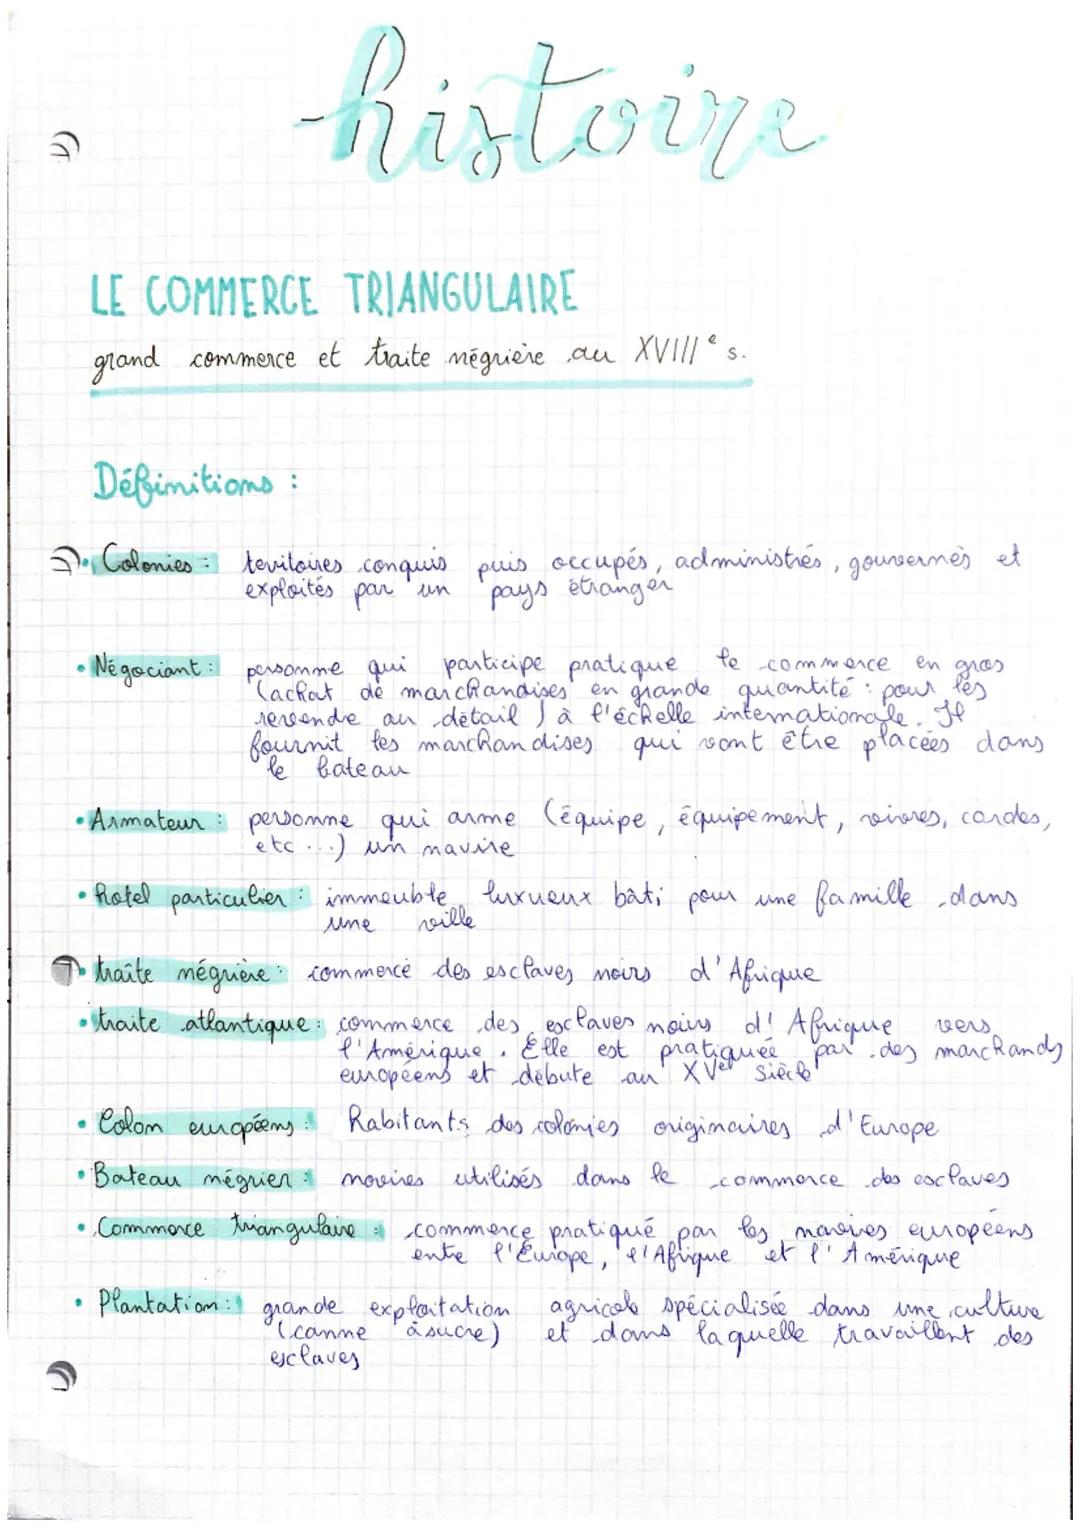 histoire
LE COMMERCE TRIANGULAIRE
grand commerce et traite négrière au XVIIIe s.
Définitions :
• Colonies : territoires conquis puis occupés, administrés, gouvernés et
exploités par un pays étranger
• Négociant : personne qui participe pratique le commerce en gros
(achat de marchandises en grande quantité : pour les
revendre au détail) à l'échelle internationale. Il
fournit les marchandises qui vont être placées dans
le bateau
• Armateur : personne qui arme (équipe, équipement, vivres, cordes,
etc ...) un navire
• hotel particulier : immeuble luxueux bâti pour une famille dans
une ville
• traite négrière : commerce des esclaves noirs d'Afrique
• traite atlantique : commerce des esclaves noirs d'Afrique vers
l'Amérique. Elle est pratiquée par des marchands
européens et débute au XVe siècle
• Colon européens : habitants des colonies originaires d'Europe
• Bateau négrier : navires utilisés dans le commerce des esclaves
• Commerce triangulaire : commerce pratiqué par les navires européens
entre l'Europe, l'Afrique et l'Amérique
• Plantation : grande exploitation agricole spécialisée dans une culture
(canne à sucre) et dans laquelle travaillent des
esclaves